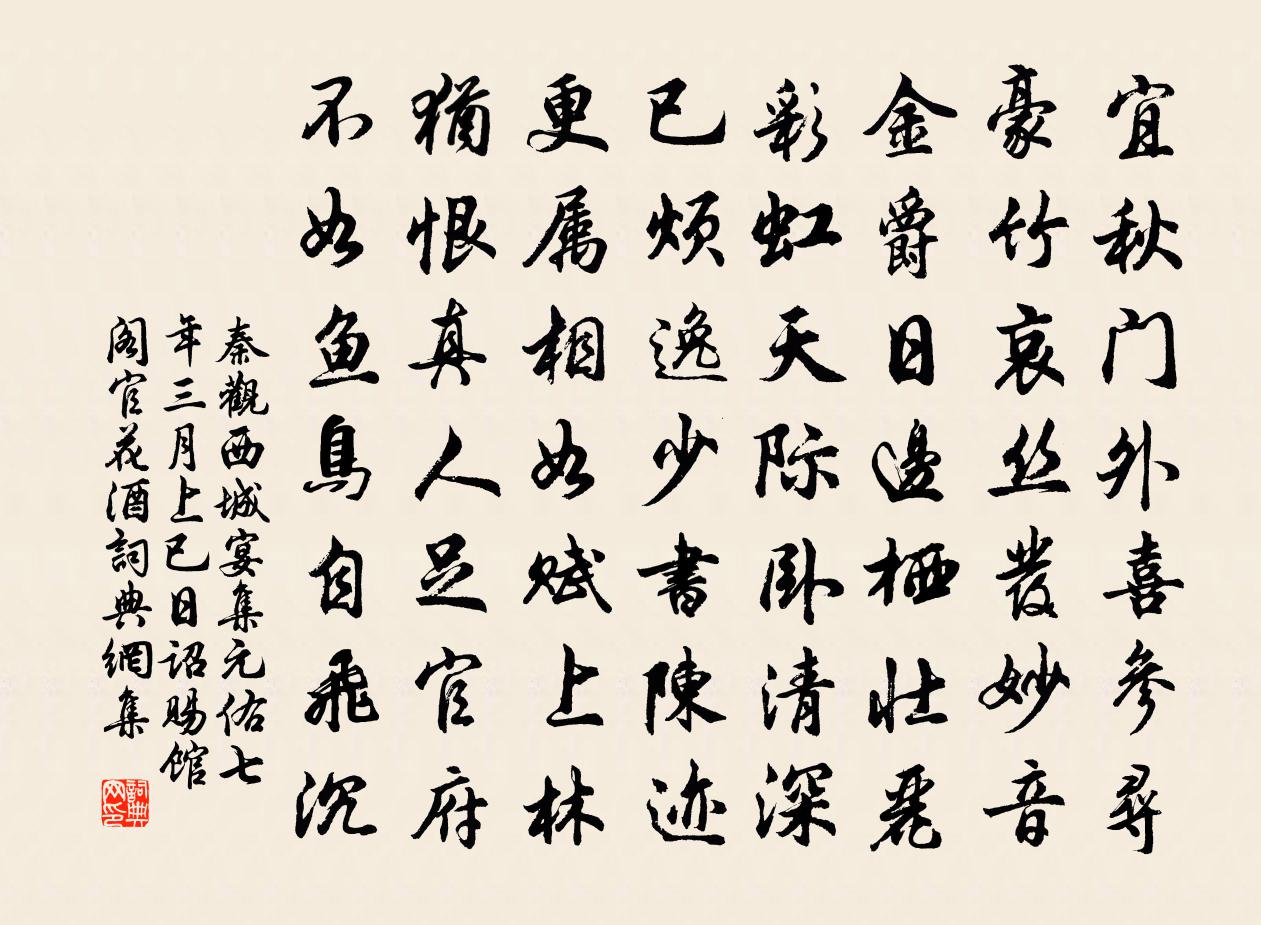 宜秋门外喜參尋
豪竹哀丝發妙音
金爵日邊栖壮麗
彩虹天际卧清深
已烦逸少書陳迹
更属相如赋上林
猶恨真人足官府
不如鱼鳥自飛沉
秦觀西城宴集元佑七
年三月上巳日诏賜館
阁官花酒詞典網集
詞典网印